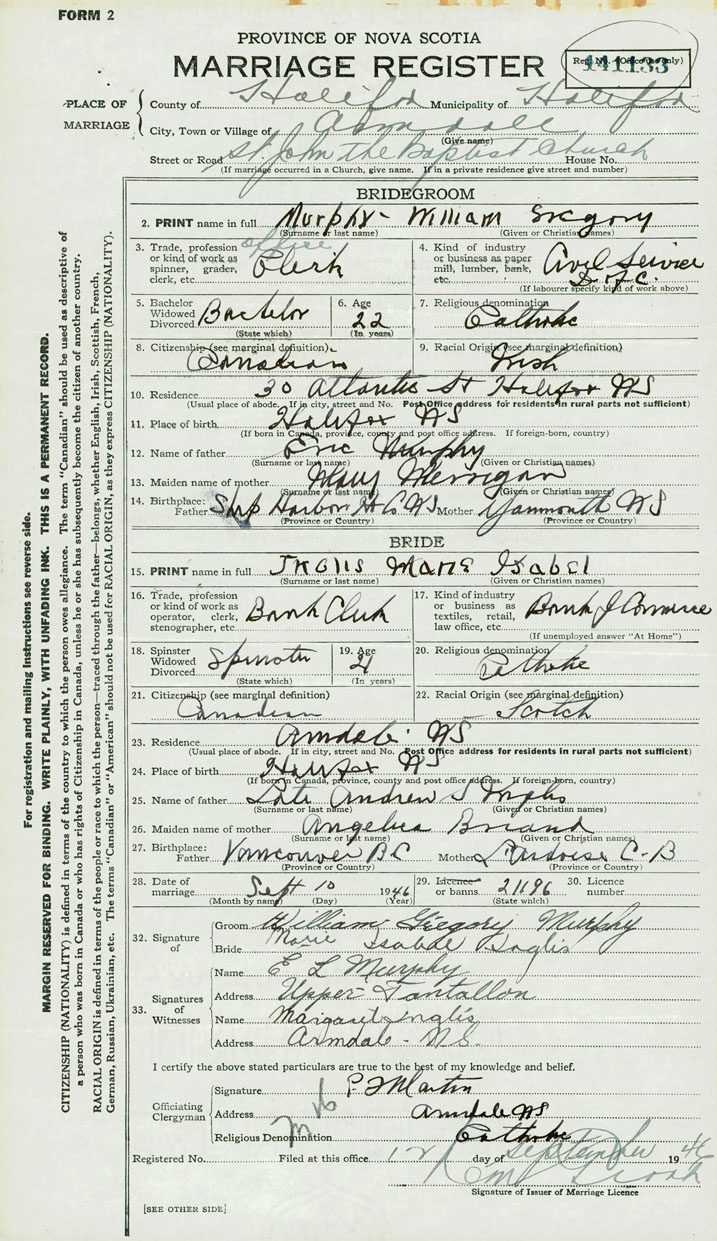 FORM 2
PROVINCE OF NOVA SCOTIA
MARRIAGE REGISTER
Reg. No. (Office use only)
PLACE OF MARRIAGE
County of Halifax Municipality of Halifax
City, Town or Village of Armdale
(Give name)
Street or Road St. John the Baptist Church House No.
(If marriage occurred in a Church, give name. If in a private residence give street and number)
BRIDEGROOM
2. PRINT name in full Murphy - William Gregory
(Surname or last name) (Given or Christian names)
3. Trade, profession or kind of work as spinner, grader, clerk, etc. office Clerk
4. Kind of industry or business as paper mill, lumber, bank, etc. Civil Service
(If labourer specify kind of work above)
5. Bachelor Widowed Divorced Bachelor
(State which)
6. Age 22
(In years)
7. Religious denomination Catholic
8. Citizenship (see marginal definition) Canadian
9. Racial Origin (see marginal definition) Irish
10. Residence 30 Atlantic St Halifax NS
(Usual place of abode. If in city, street and No. Post Office address for residents in rural parts not sufficient)
11. Place of birth Halifax NS
(If born in Canada, province, county and post office address. If foreign-born, country)
12. Name of father Eric Murphy
(Surname or last name) (Given or Christian names)
13. Maiden name of mother Mary Merrigan
(Surname or last name) (Given or Christian names)
14. Birthplace: Father Ship Harbor Hx Co NS Mother Yarmouth NS
(Province or Country) (Province or Country)
BRIDE
15. PRINT name in full Inglis Marie Isabel
(Surname or last name) (Given or Christian names)
16. Trade, profession or kind of work as operator, clerk, stenographer, etc. Bank Clerk
17. Kind of industry or business as textiles, retail, law office, etc. Bank of Commerce
(If unemployed answer "At Home")
18. Spinster Widowed Divorced Spinster
(State which)
19. Age 21
(In years)
20. Religious denomination Catholic
21. Citizenship (see marginal definition) Canadian
22. Racial Origin (see marginal definition) Scotch
23. Residence Armdale NS
(Usual place of abode. If in city, street and No. Post Office address for residents in rural parts not sufficient)
24. Place of birth Halifax NS
(If born in Canada, province, county and post office address. If foreign-born, country)
25. Name of father Late Andrew S Inglis
(Surname or last name) (Given or Christian names)
26. Maiden name of mother Angelica Briand
(Surname or last name) (Given or Christian names)
27. Birthplace: Father Vancouver BC Mother C-B
(Province or Country) (Province or Country)
28. Date of marriage Sept 10 1946
(Month by name) (Day) (Year)
29. Licence or banns 21196
(State which)
30. Licence number
32. Signature of
Groom William Gregory Murphy
Bride Marie Isabel Inglis
33. Signatures of Witnesses
Name E L Murphy
Address Upper Tantallon
Name Margaret Inglis
Address Armdale - N.S.
I certify the above stated particulars are true to the best of my knowledge and belief.
Officiating Clergyman
Signature Martin
Address Armdale NS
Religious Denomination Catholic
Registered No. Filed at this office 12 day of September 1946
Signature of Issuer of Marriage Licence
[SEE OTHER SIDE]
For registration and mailing instructions see reverse side.
MARGIN RESERVED FOR BINDING. WRITE PLAINLY, WITH UNFADING INK. THIS IS A PERMANENT RECORD.
CITIZENSHIP (NATIONALITY) is defined in terms of the country to which the person owes allegiance. The term "Canadian" should be used as descriptive of
a person who was born in Canada or who has rights of Citizenship in Canada, unless he or she has subsequently become the citizen of another country.
RACIAL ORIGIN is defined in terms of the people or race to which the person—traced through the father—belongs, whether English, Irish, Scottish, French,
German, Russian, Ukrainian, etc. The terms "Canadian" or "American" should not be used for RACIAL ORIGIN, as they express CITIZENSHIP (NATIONALITY).